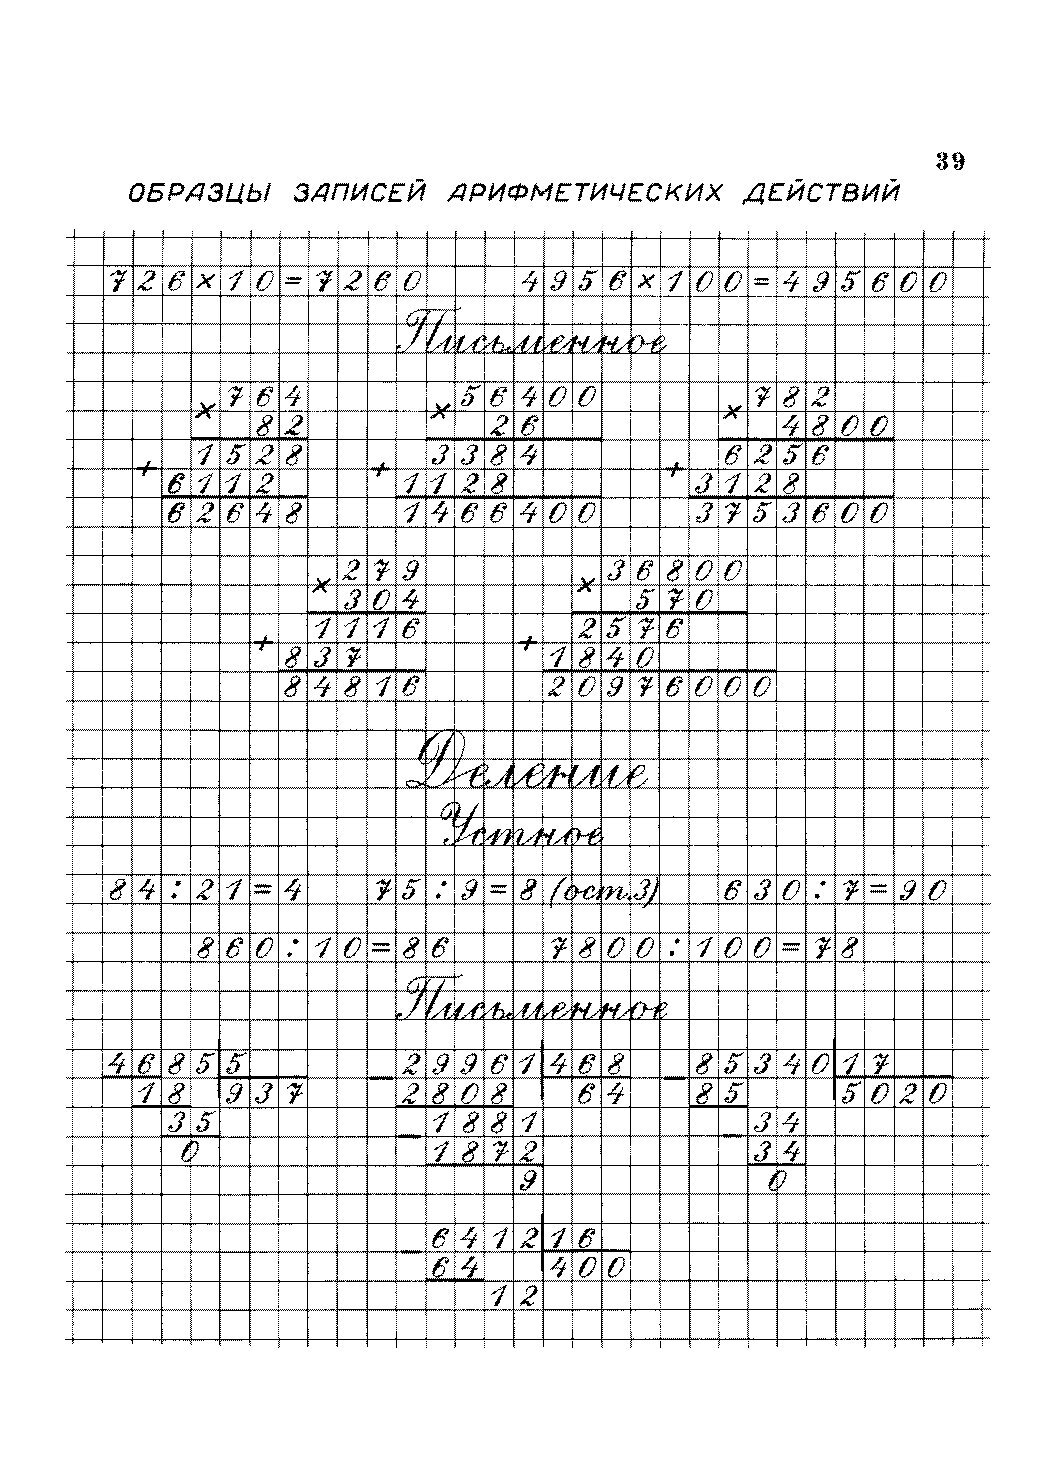 39
ОБРАЗЦЫ ЗАПИСЕЙ АРИФМЕТИЧЕСКИХ ДЕЙСТВИЙ
726×10=7260 4956×100=495600
Письменное
× 764 × 56400 × 782
82 26 4800
+ 1528 + 3384 + 6256
6112 1128 3128
62648 1466400 3753600
× 279 × 36800
304 570
+ 1116 + 2576
837 1840
84816 20976000
Деление
Устное
84:21=4 75:9=8 (ост.3) 630:7=90
860:10=86 7800:100=78
Письменное
4685 5 − 29961 468 − 85340 17
18 937 2808 64 85 5020
35 − 1881 − 34
0 1872 34
9 0
− 6412 16
64 400
12